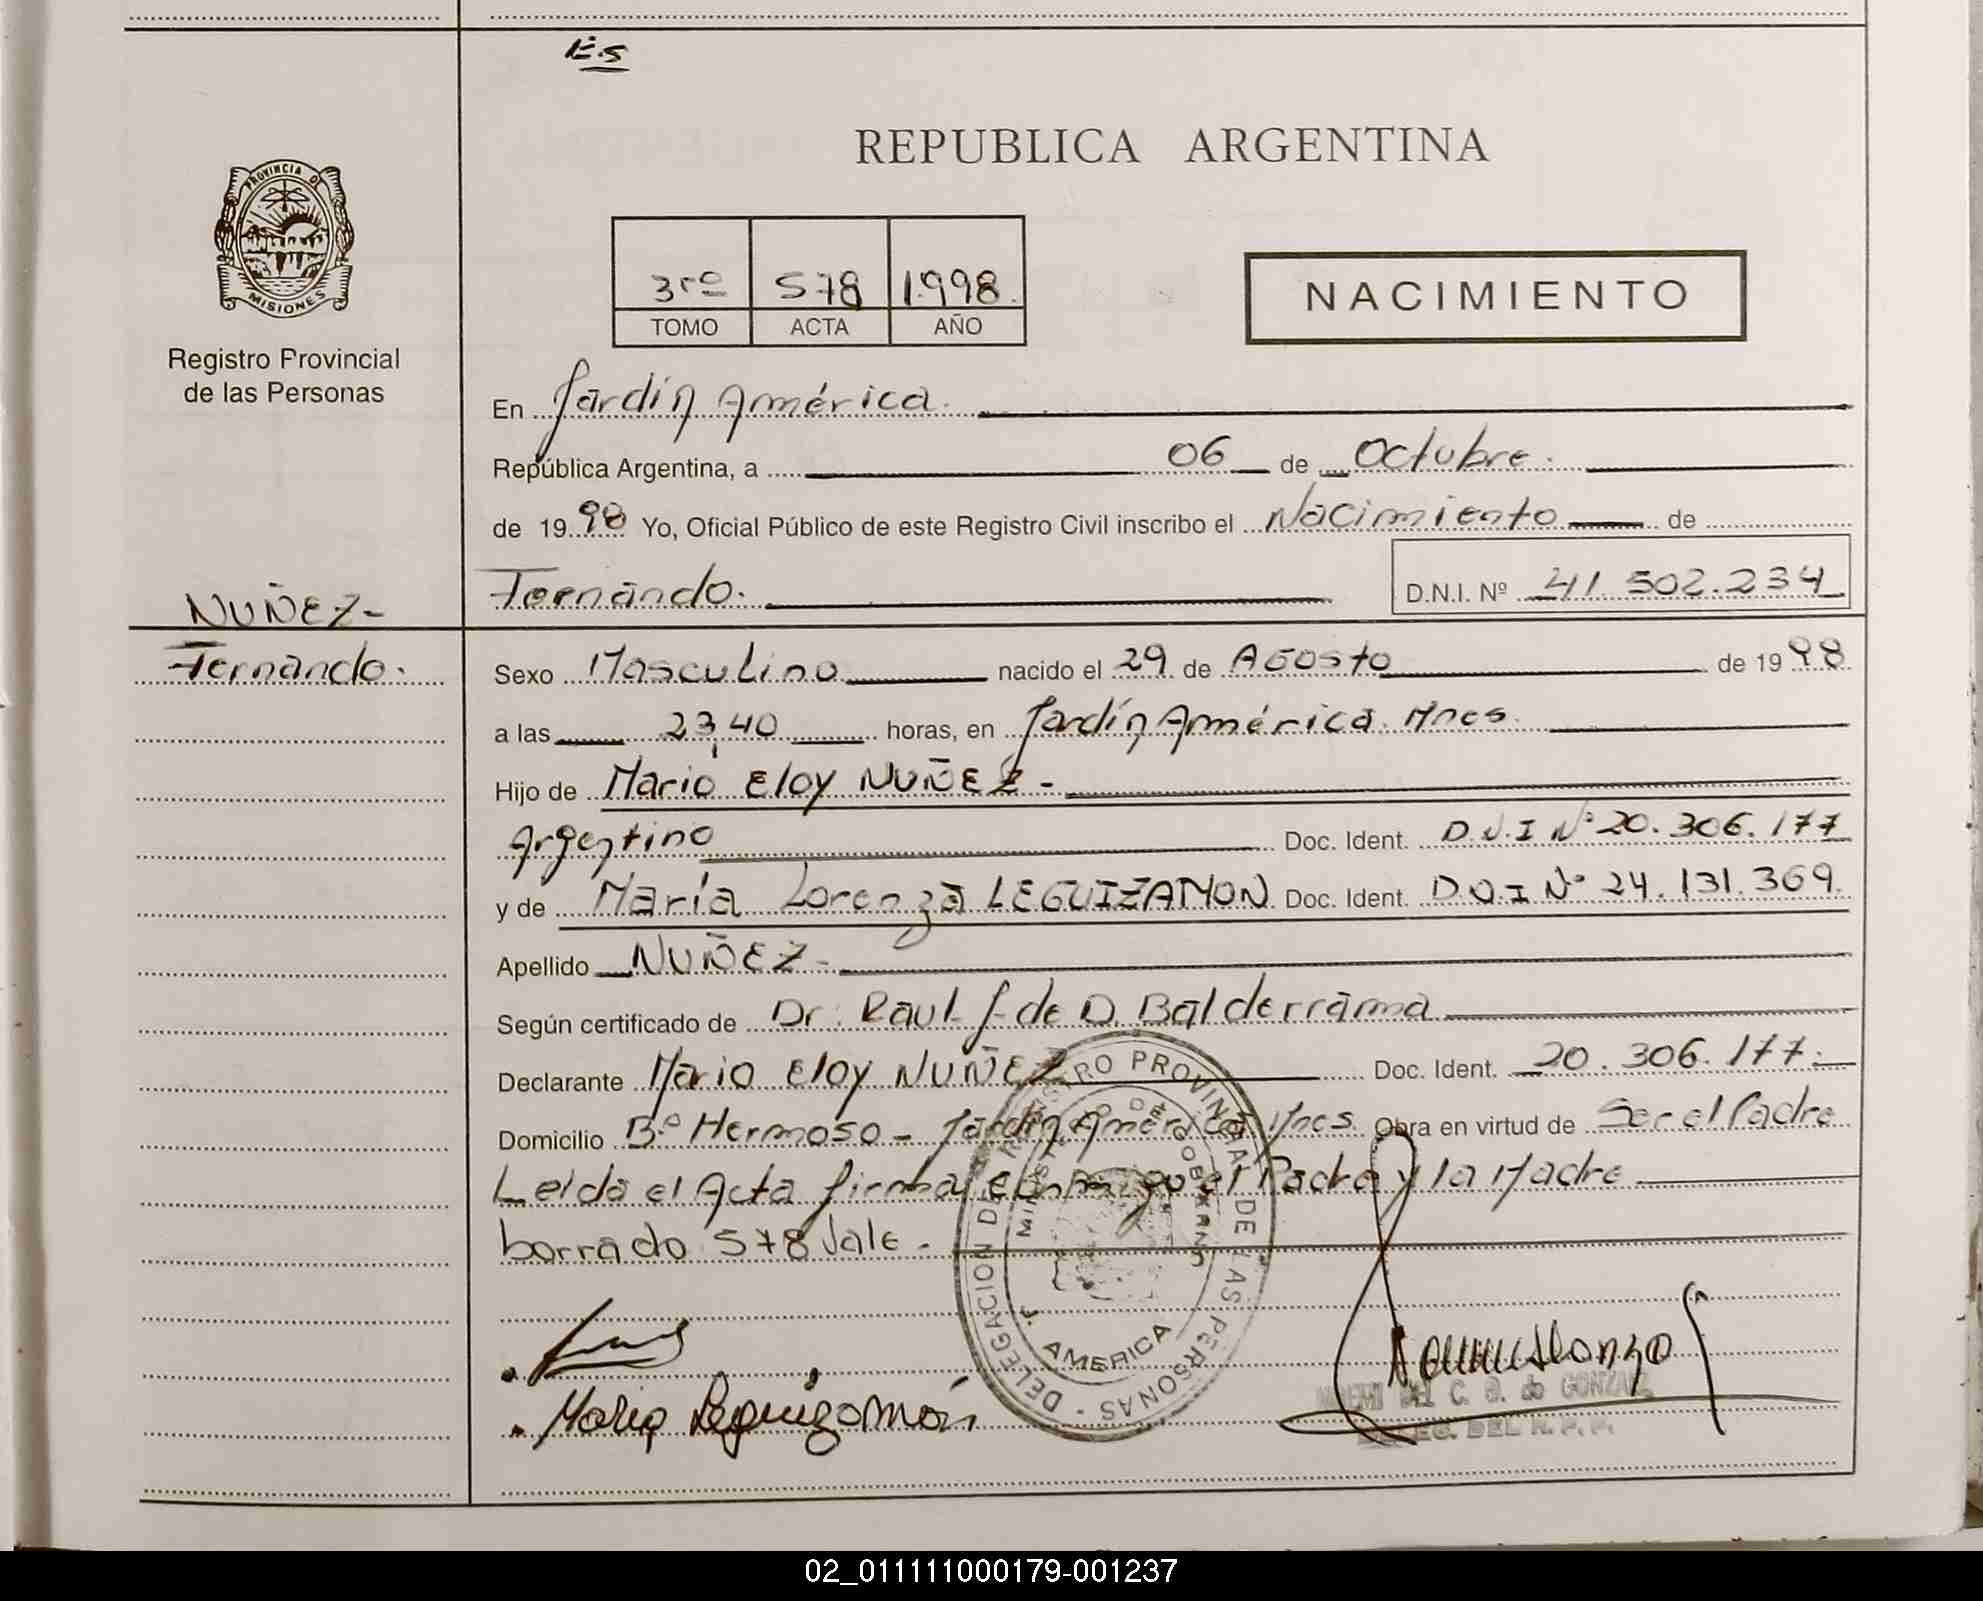 E.S
PROVINCIA DE
MISIONES
Registro Provincial
de las Personas
REPUBLICA ARGENTINA
3ro 578 1.998.
TOMO ACTA AÑO
NACIMIENTO
En Jardín América.
República Argentina, a 06 de Octubre.
de 19 98 Yo, Oficial Público de este Registro Civil inscribo el Nacimiento de
Fernando. D.N.I. Nº 41.502.234
NUÑEZ-
Fernando.
Sexo Masculino nacido el 29 de AGosto de 19 98
a las 23,40 horas, en Jardín América. Mnes.
Hijo de Mario Eloy NUÑEZ -
Argentino Doc. Ident. D.N.I Nº 20.306.177
y de María Lorenza LEGUIZAMON Doc. Ident. D.N.I Nº 24.131.369.
Apellido NUÑEZ-
Según certificado de Dr. Raul J. de D. Balderrama
Declarante Mario Eloy NUÑEZ Doc. Ident. 20.306.177.
Domicilio Bº Hermoso - Jardín América Mnes. Obra en virtud de Ser el Padre
Leida el Acta firma conmigo el Padre y la Madre
borrado 578 Vale.-
REGISTRO PROVINCIAL DE LAS PERSONAS - DELEGACION DE
MINISTERIO DE GOBIERNO
J. AMERICA
Maria Leguizamón
C. G. de GONZALEZ
DEL R. P. P.
02_011111000179-001237